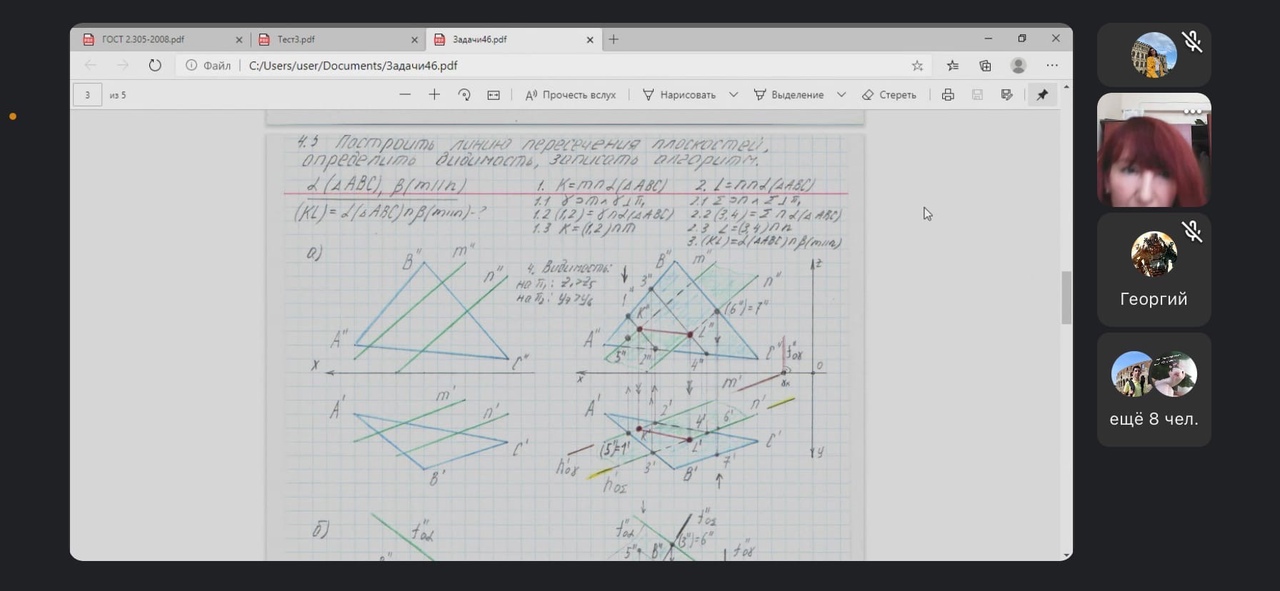 ГОСТ 2.305-2008.pdf
Тест3.pdf
Задачи46.pdf
Файл
C:/Users/user/Documents/Задачи46.pdf
3
из 5
Прочесть вслух
Нарисовать
Выделение
Стереть
4.3 Построить линию пересечения плоскостей,
определить видимость, записать алгоритм.
α(△ABC), β(m∥n)
(KL)=α(△ABC)∩β(m∥n)-?
1. K=m∩α(△ABC)
1.1 γ⊃m ∧ γ⊥π₁
1.2 (1,2)=γ∩α(△ABC)
1.3 K=(1,2)∩m
2. L=n∩α(△ABC)
2.1 Σ⊃n ∧ Σ⊥π₁
2.2 (3,4)=Σ∩α(△ABC)
2.3 L=(3,4)∩n
3. (KL)=α(△ABC)∩β(m∥n)
а)
B"
m"
n"
A"
C"
x
A'
m'
n'
C'
B'
4. Видимость:
на π₁: z₁>z₅
на π₂: y₇>y₆
B"
m"
z
n"
3"
1"
K"
(6")=7"
A"
L"
5"
2"
4"
C"
f"oγ
x
O
m'
n'
A'
2'
4'
6'
K'
L'
C'
(5')=1'
h'oγ
3'
B'
7'
y
h'oΣ
б)
f"oα
f"oα
f"oΣ
5"
B"
(3")=6"
f"oγ
Георгий
ещё 8 чел.